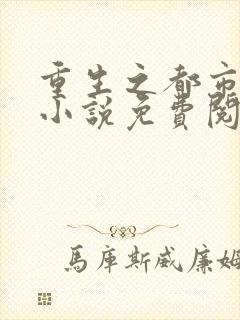 重生之都市
小說免費閱
馬庫斯威廉姆